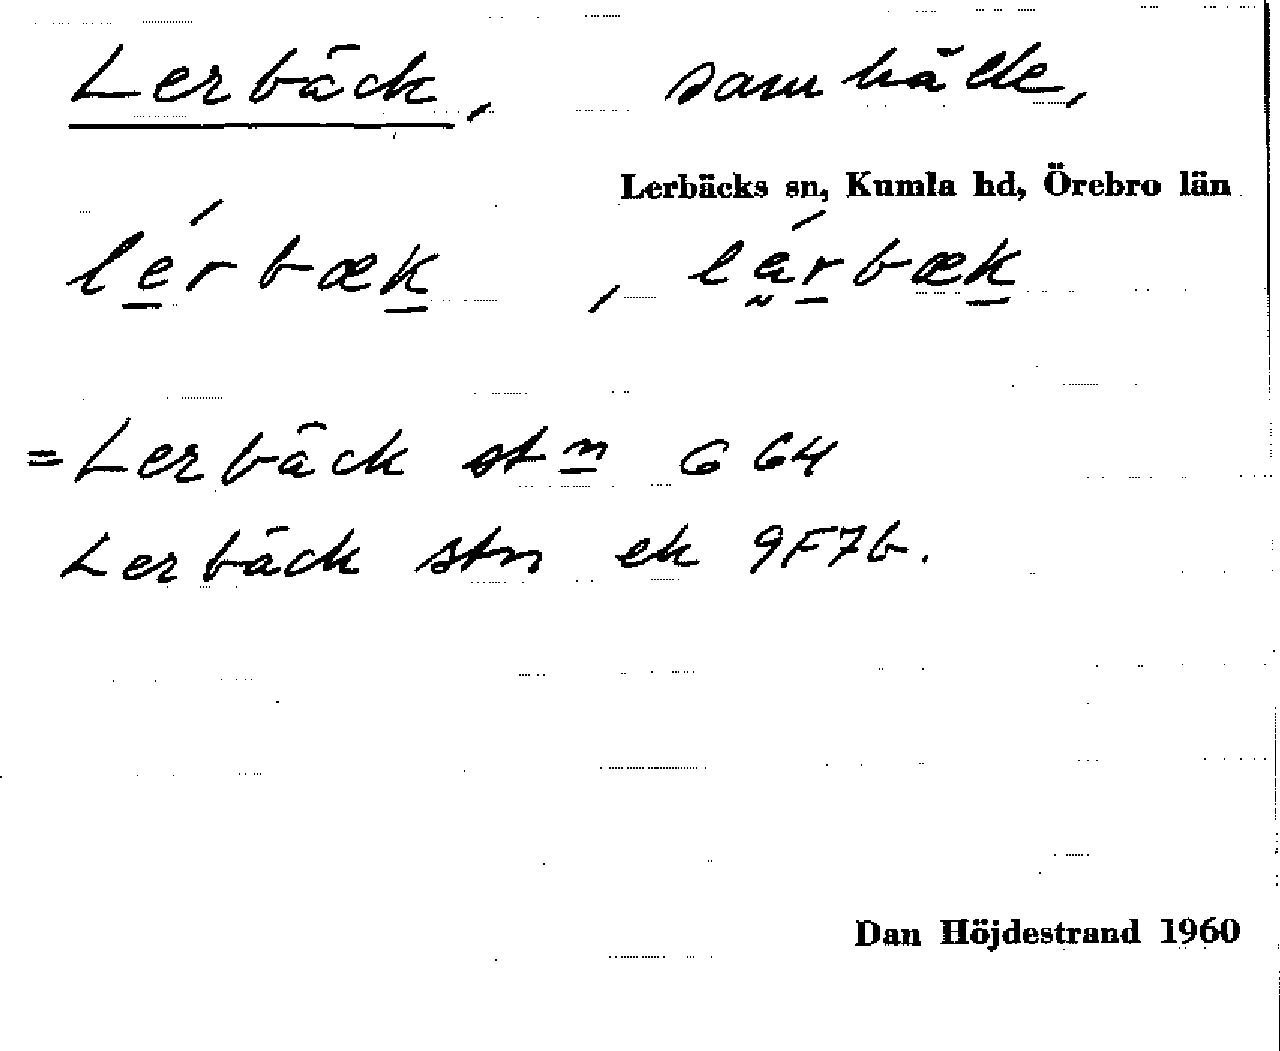 Lerbäck, samhälle,
Lerbäcks sn, Kumla hd, Örebro län
le̲ŕbæk̲, lä́r̲bæk̲
=Lerbäck stn G 64
Lerbäck stn ek 9F7b.
Dan Höjdestrand 1960